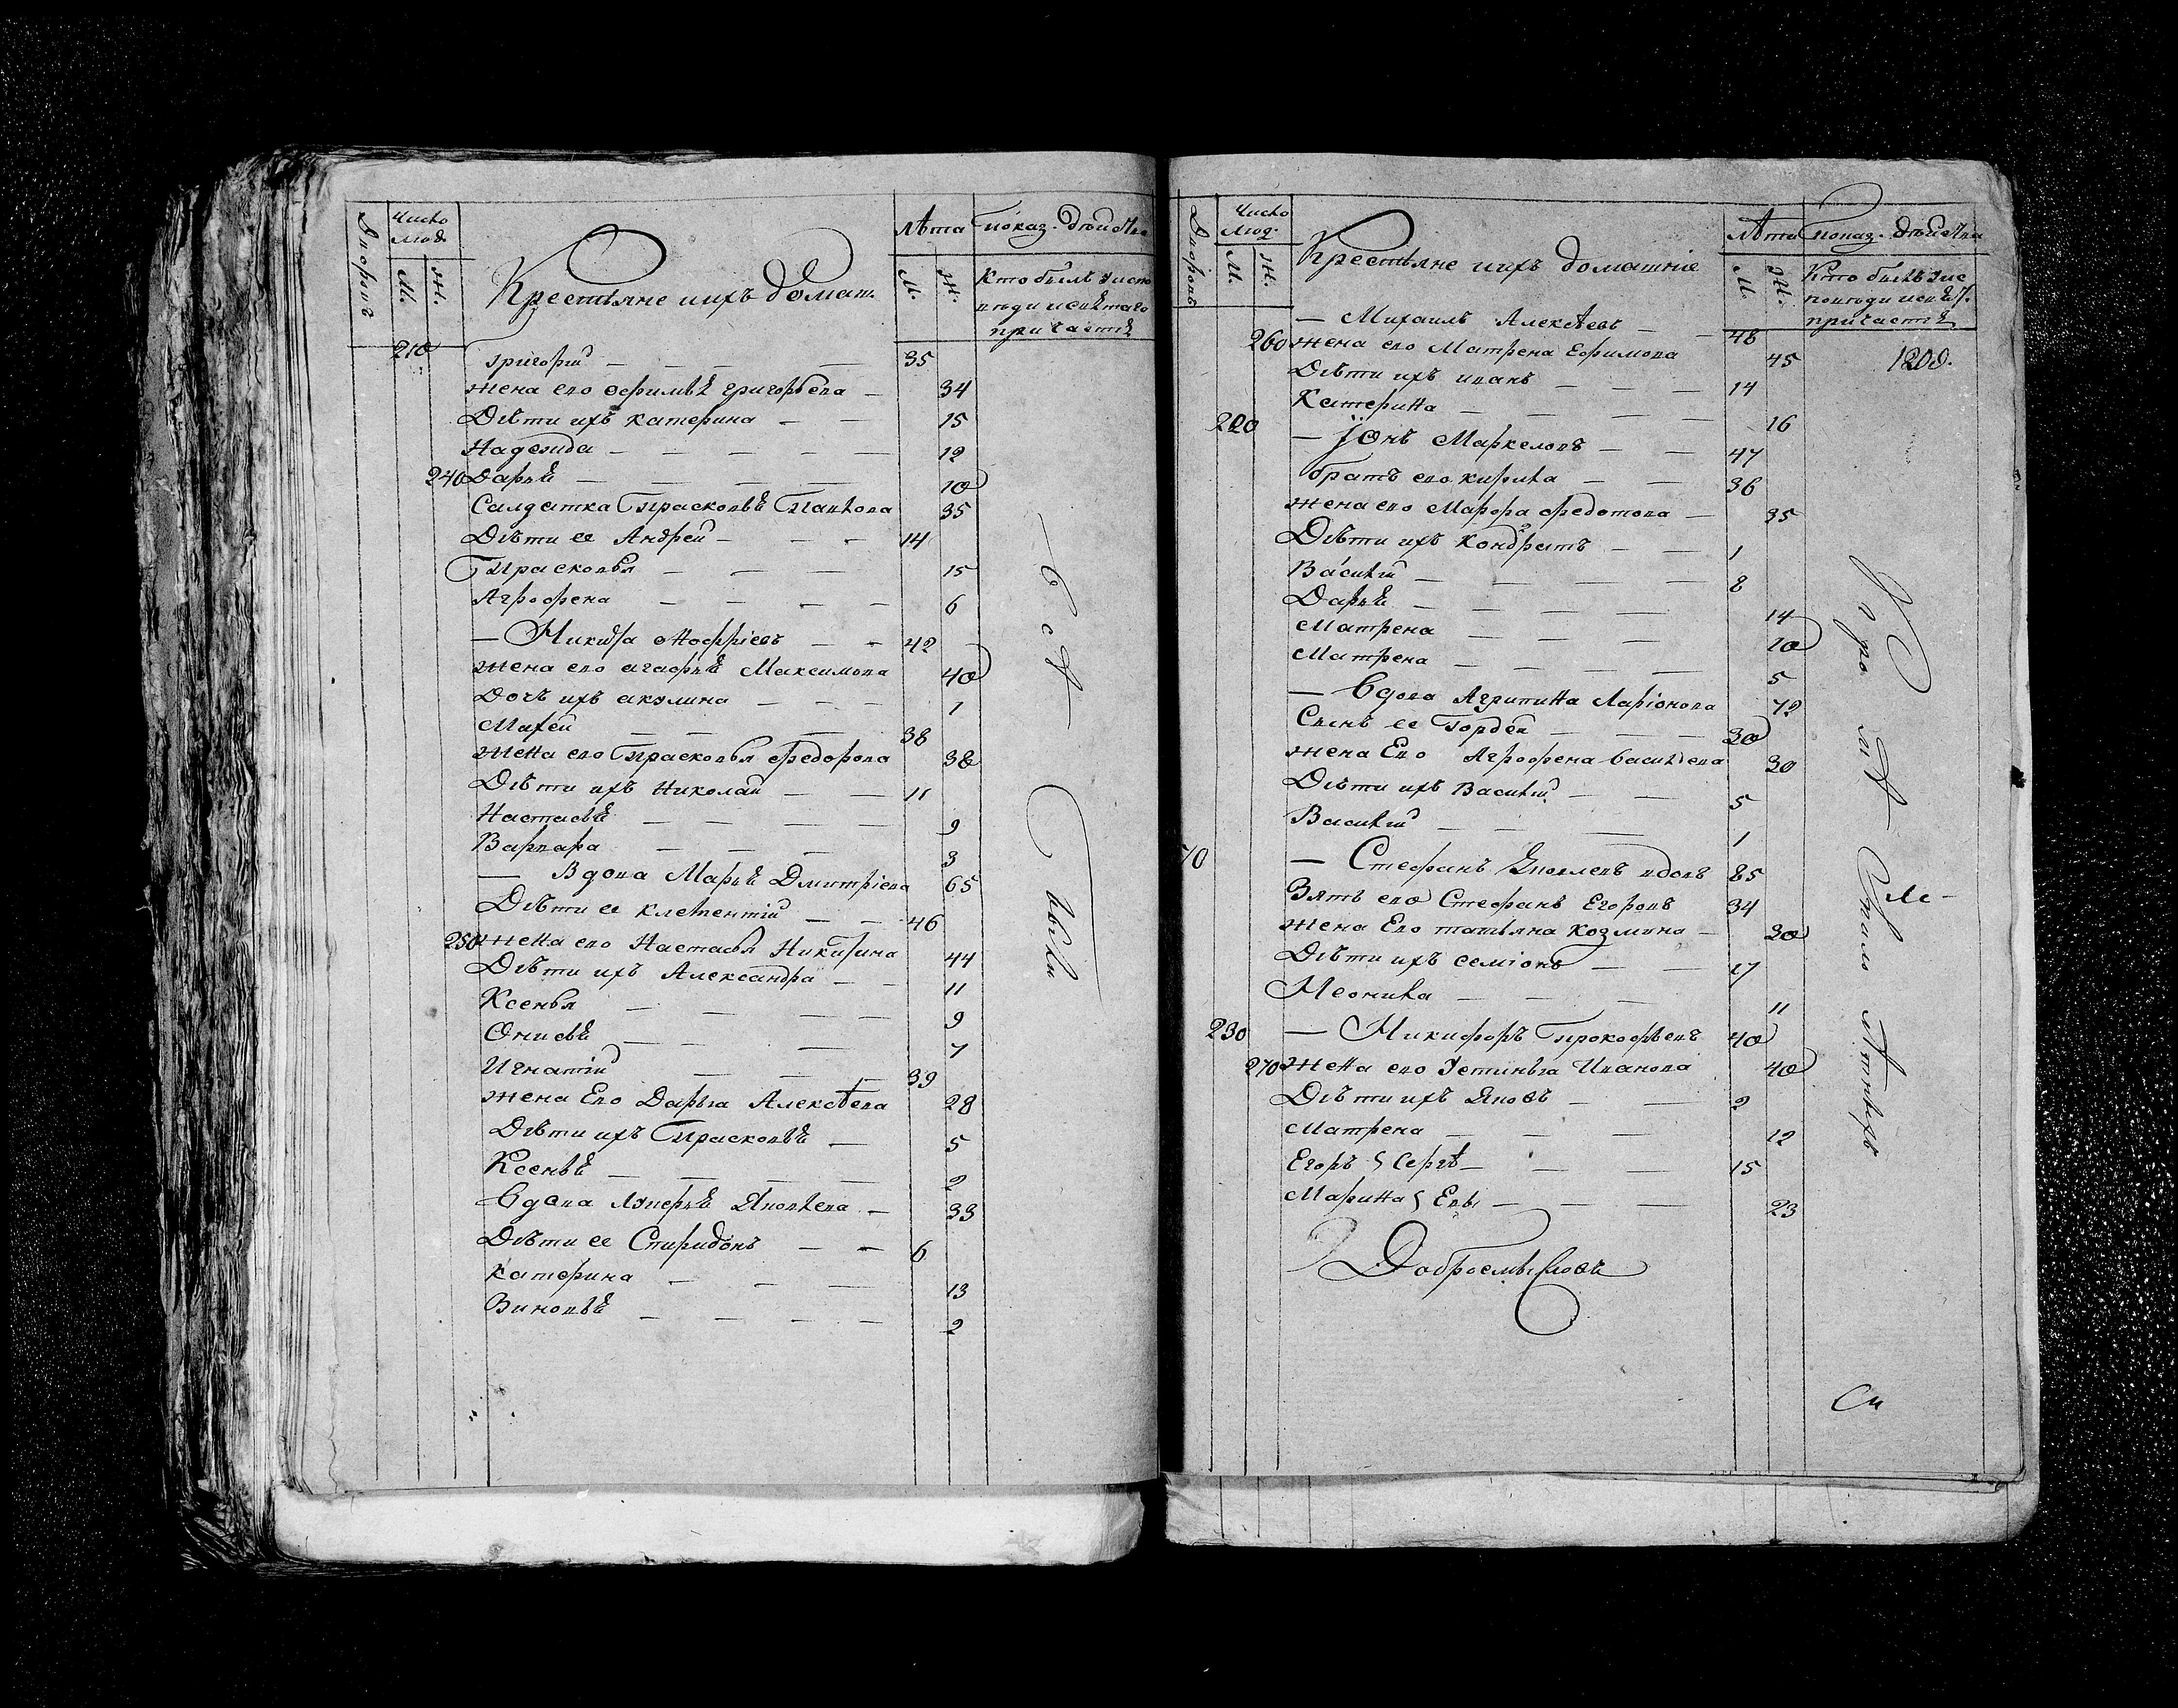 Дворовъ
Число люд.
М. Ж.
Крестьяне ихъ домаш.
Лѣта
М. Ж.
показ. дѣйства
Кто былъ у исповѣди и святаго причастія
210 Григорій — 35
жена его Офимья Григорьева — 34
Дѣти ихъ Катерина — 15
Надежда — 12
240 Дарья — 10
Салдатка Прасковья Павлова 35
Дѣти ее Андрей — 14
Прасковья — 15
Агрофена — 6
— Никита — 42
жена его Агафья Максимова 40
Дочь ихъ Акулина — 1
Матей — 38
жена его Прасковья Федорова 38
Дѣти ихъ Николай — 11
Настасья — 9
Варвара — 3
— Вдова Марья Дмитріева 65
Дѣти ее Клементій — 46
250 жена его Настасья Никитина 44
Дѣти ихъ Александра — 11
Ксенья — 9
Онисья — 7
Игнатій — 39
жена Его Дарья Алексѣева 28
Дѣти ихъ Прасковья — 5
Ксенья — 2
Вдова Лукерья Яковлева — 33
Дѣти ее Спиридонъ — 6
Катерина — 13
Зиновья — 2
всѣ были
Дворовъ
Число люд.
М. Ж.
Крестьяне ихъ домашніе
Лѣта
М. Ж.
показ. дѣйства
Кто былъ у исповѣди и свят. причастія
— Михаилъ Алексѣевъ — 48
260 жена его Матрена Ефимова 45
1800.
Дѣти ихъ Иванъ — 14
Катерина — 16
220 — Іонъ Маркеловъ — 47
братъ его Кирила — 36
жена его Марфа Федотова — 35
Дѣти ихъ Кондратъ — 1
Василій — 8
Дарья — 14
Матрена — 10
Матрена — 5
— Вдова Агрипина Ларіонова 72
Сынъ ее Гордей — 30
жена Его Агрофена Василева 30
Дѣти ихъ Василій — 5
Василій — 1
70 — Стефанъ Яковлевъ вдовъ 85
Зять его Стефанъ Егоровъ 34
жена Его Татьяна Козмина — 30
Дѣти ихъ Семіонъ — 17
Леонила — 11
230 — Никифоръ Прокофьевъ 40
270 жена его Устинья Иванова 40
Дѣти ихъ Яковъ — 2
Матрена — 12
Егоръ Сергѣ — 15
Марина Евы — 23
Добросмысловъ
Кромѣ
Ле-
Си